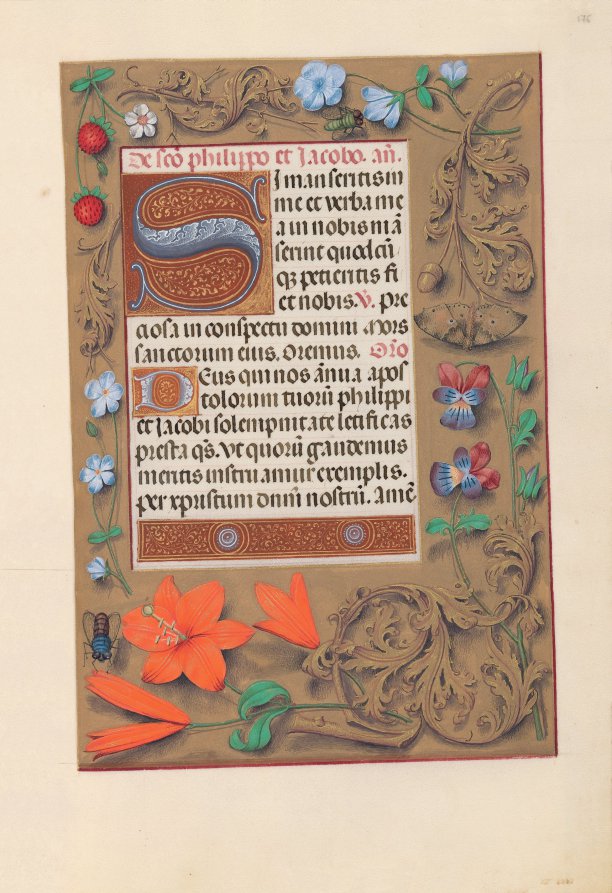 176
De scō philippo et Jacobo. añ.
Si manseritis in
me et verba me
a in nobis ma
serint quodcū
qʒ petieritis fi
et vobis. V. pre
ciosa in conspectu domini Mors
sanctorum eius. Oremus. Orō
Deus qui nos ānua apos
tolorum tuorū philippi
et Jacobi solempnitate letificas
presta qs. Vt quorū gaudemus
meritis instruamur exemplis.
per xpristum dnm̄ nostrū. Amē